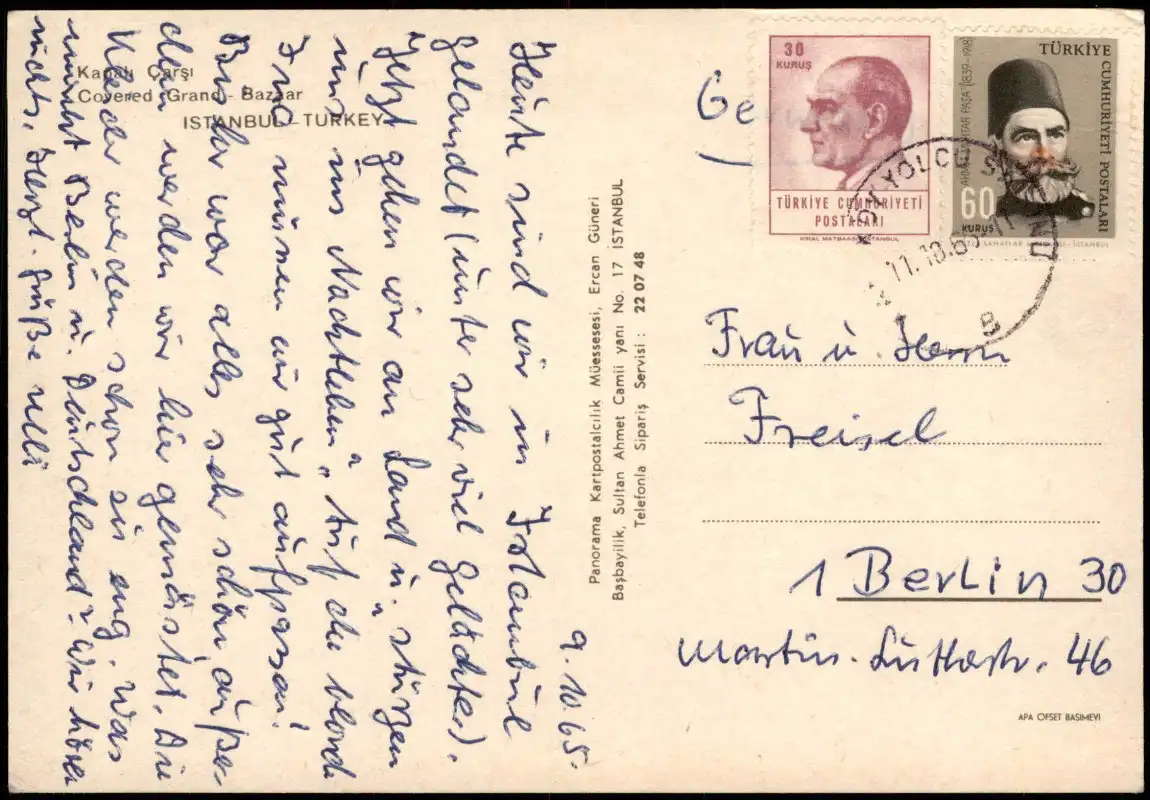 Kapalı Çarşı
Covered Grand - Bazaar
ISTANBUL - TURKEY
9.10.65.
Heute sind wir in Istambul
gelandet (unter sehr viel Gelächter).
Jetzt gehen wir an Land u. "stürzen
uns ins Nachtleben". Auf die blonde
müssen wir gut aufpassen!
war alles sehr schön außer
dem werden wir hier gemästet. Die
Kleider werden schon zu eng. Was
macht Berlin u. Deutschland? Wir hören
nichts. Herzl. Grüße
Panorama Kartpostalcılık Müessesesi, Ercan Güneri
Başbayilik, Sultan Ahmet Camii yanı No. 17 İSTANBUL
Telefonla Sipariş Servisi : 22 07 48
30
KURUŞ
TÜRKİYE CUMHURİYETİ
POSTALARI
KIRAL MATBAASI-İSTANBUL
TÜRKİYE
CUMHURİYETİ POSTALARI
AHMET MUHTAR PAŞA (1839-1918
60
KURUŞ
11.10.65
B
Frau u. Herrn
Freisel
1 Berlin 30
Martin-Lutherstr. 46
APA OFSET BASIMEVİ